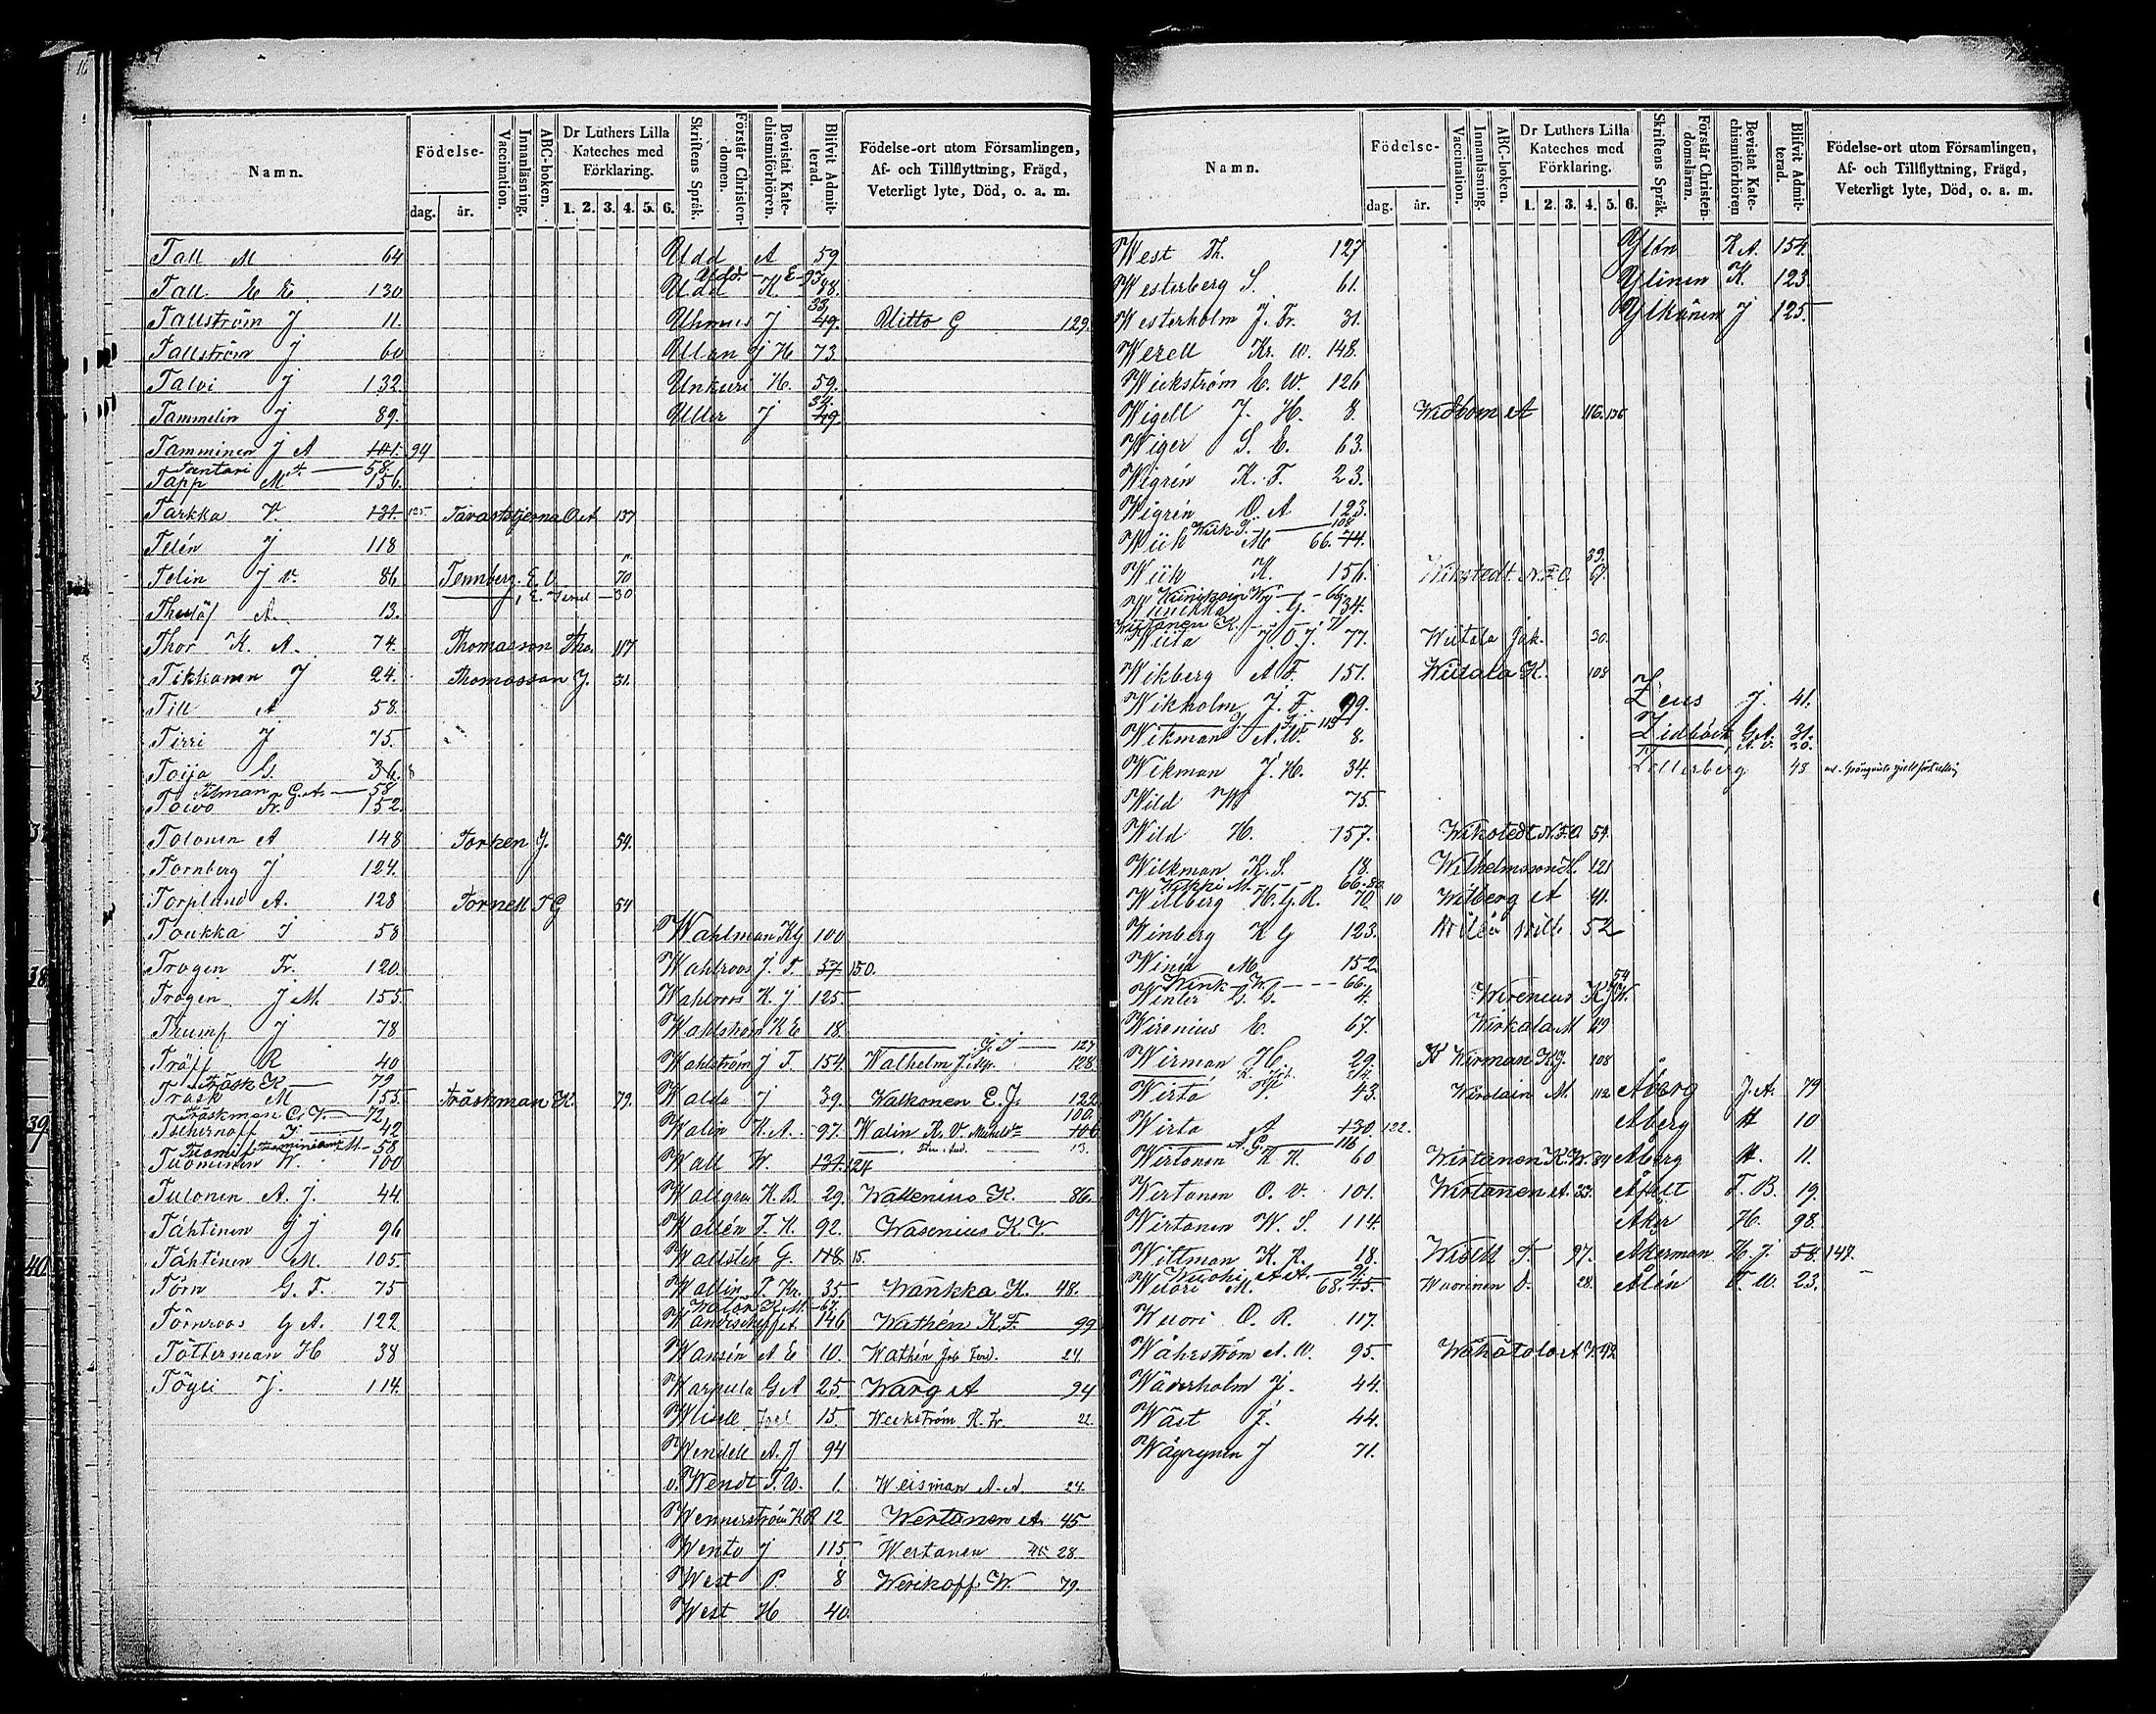 Namn.
Födelse-
dag.
år.
Vaccination.
Innanläsning.
ABC-boken.
Dr Luthers Lilla
Kateches med
Förklaring.
1. 2. 3. 4. 5. 6.
Skriftens Språk.
Förstår Christen-
domen.
Bevistat Kate-
chismiförhören.
Blifvit Admit-
terad.
Födelse-ort utom Församlingen,
Af- och Tillflyttning, Frägd,
Veterligt lyte, Död, o. a. m.
Tall M 64
Tall E E 130
Tallström J 11.
Tallström J 60
Talvi J 132.
Tammelin J 89.
Tamminen J A 101. 94
Tantari 58.
Tapp M 156.
Tarkka K. 131. 125.
Telén J 118
Telin J v. 86
A. 13.
Thor K. A. 74.
Tikkanen J 24.
Till A 58.
Tirri J 75.
Toija G. 36.
Tilman G. A. 58
Toivo Fr. 152.
Tolonen A 148
Tornberg J 124.
Torplund A. 128
Toukka J 58
Trogen Fr. 120.
Trogen J M. 155.
Trump J 78
Träff R 40
Träsk K 79
Trask M 155.
Träskman C. V. 72.
Tschernoff J 42
58
Tuominen W. 100
Tulonen A. J. 44
Tähtinen J J 96
Tähtinen M. 105.
Törn G. F. 75
Törnroos G A. 122
Tötterman H 38
Töyli J. 114.
Tavaststjerna O A 137
Tennberg. E. V. 70
30
Thomasson Tho. 117
Thomasson J. 31.
Torken J. 54.
Tornell T G 54
Träskman K. 79.
Udd A 59
Udd K. 48.
33.
J 49.
Ullan J H 73
Unkuri H. 59.
32.
Uller J 49.
Uitto G 129.
Wahlman K G 100
Wahlroos J. F. 57. 150.
Wahlroos K. J 125.
Wahlström K E 18.
Wahlström J F. 154.
Walda J 39.
Walin K. A. 97.
Wall W. 131. 124
Wallgren K. B. 29.
Wallén F. K. 92.
G. 118. 15.
Wallin F. Kr. 35
67.
A. 146
Wansén A E 10.
Warpula G A 25.
Joel 15.
Wendell A. J 94
v. Wendt F. W. 1.
Wennerström K R 12
Wento J 115.
West P. 8
West H 40
J. J 127
Walhelm J. 128.
Walkonen E. J. 122
100.
Walin K. V. 106
13.
Wallenius K. 86.
Wasenius K. V.
Wankka K. 48.
Wathén K. F. 99
Wathén Joh Ferd. 24.
Warg A 94
Weckström K. Fr. 22.
Weisman A. A. 24.
Wertanen A. 45
Wertanen 45 28
Werikoff. W. 79.
Namn.
Födelse-
dag.
år.
Vaccination.
Innanläsning.
ABC-boken.
Dr Luthers Lilla
Kateches med
Förklaring.
1. 2. 3. 4. 5. 6.
Skriftens Språk.
Förstår Christen-
domsläran.
Bevistat Kate-
chismiförhören
Blifvit Admit-
terad.
Födelse-ort utom Församlingen,
Af- och Tillflyttning, Frägd,
Veterligt lyte, Död, o. a. m.
West Th. 127
Westerberg S. 61.
Westerholm J. Fr. 31.
Werell Kr. W. 148.
Wickström E. W. 126
Wigell J. H. 8.
Wiger S. E. 63.
Wigrén K. F. 23.
Wigrén O. A 123.
108
Wiik M 66. 74.
Wiik K. 156.
66.
G. 134.
Wiitanen K. 71
Wiita J. O. J. 77.
Wikberg A F. 151.
Wikholm J. F. 99.
115
Wikman A. W. 8.
Wikman J. H. 34.
Wild W 75.
Wild H. 157.
Wilkman K. S. 18.
66. 80.
Willberg H. G. R. 70. 10
Winberg K G 123.
M 152.
Wink W. 66.
Winter G. G. 4.
Wirenius E. 67.
Wirman H 29.
Wirta 43.
Wirta A 130. 122.
A. G. 116
Wirtanen K K. 60
Wirtanen O. V. 101.
Wirtanen W. S. 114.
Wittman K. R. 18.
Wuohi A A. 21.
M. 68. 45.
Wuori O. R. 117.
Wåhrström A. W. 95.
Wäderholm J. 44.
Wäst J. 44.
Wäyrynen J 71.
Widbom A 116. 136
39.
Wikstedt N. F. O. 67.
Wiitala Jak. 30.
Wiitala K. 108
Wikstedt N. F. O. 54.
Wilhelmsson H. 121
Wilberg A 41.
52
54
Wirenius K J W.
Wirkala M 49
Wirman K J. 108
Wirolain M. 112
Wirtanen K. W. 84
Wirtanen A. 33.
F. 97.
Wuorinen O. 28.
Ylén K A. 154.
Ylinen K. 123.
Ylkänen J 125.
Zeus J. 41.
Zidbäck G A. 31.
A. V. 30.
Zellerberg 43
Åberg J. A. 79
Åberg A 10
Åberg A. 11.
F. B. 19.
Åker H. 98.
Åkerman H. J. 58. 147.
Ålén F. W. 23.